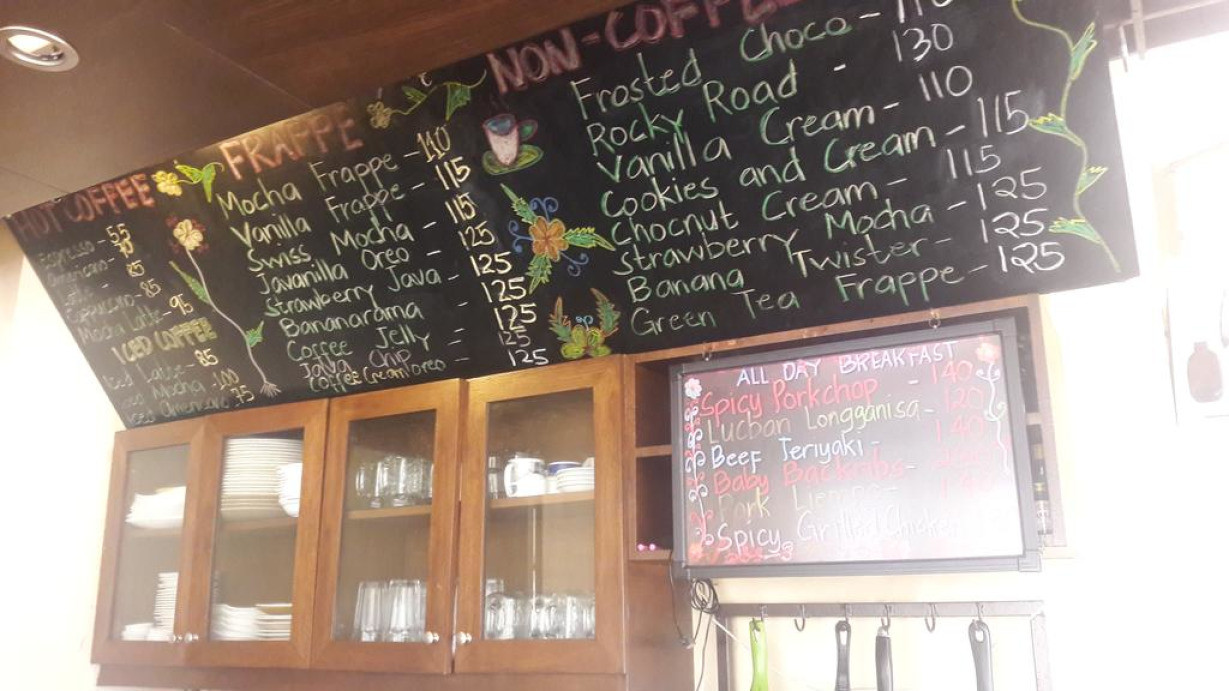 HOT COFFEE
Espresso - 55
Americano -
Latte -
Cappuccino - 85
Mocha Latte - 95
ICED COFFEE
Iced Latte - 85
Iced Mocha - 100
Iced Americano 75
FRAPPE
Mocha Frappe - 110
Vanilla Frappe - 115
Swiss Mocha - 115
Javanilla Oreo - 125
Strawberry Java - 125
Bananarama - 125
Coffee Jelly - 125
Java Chip - 125
Coffee Cream Oreo - 125
NON-COFFEE
Frosted Choco - 110
Rocky Road - 130
Vanilla Cream - 110
Cookies and Cream - 115
Chocnut Cream - 115
Strawberry Mocha - 125
Banana Twister - 125
Green Tea Frappe - 125
ALL DAY BREAKFAST
Spicy Porkchop - 140
Lucban Longganisa - 120
Beef Teriyaki - 140
Baby Backribs -
Pork Liempo -
Spicy Grilled Chicken